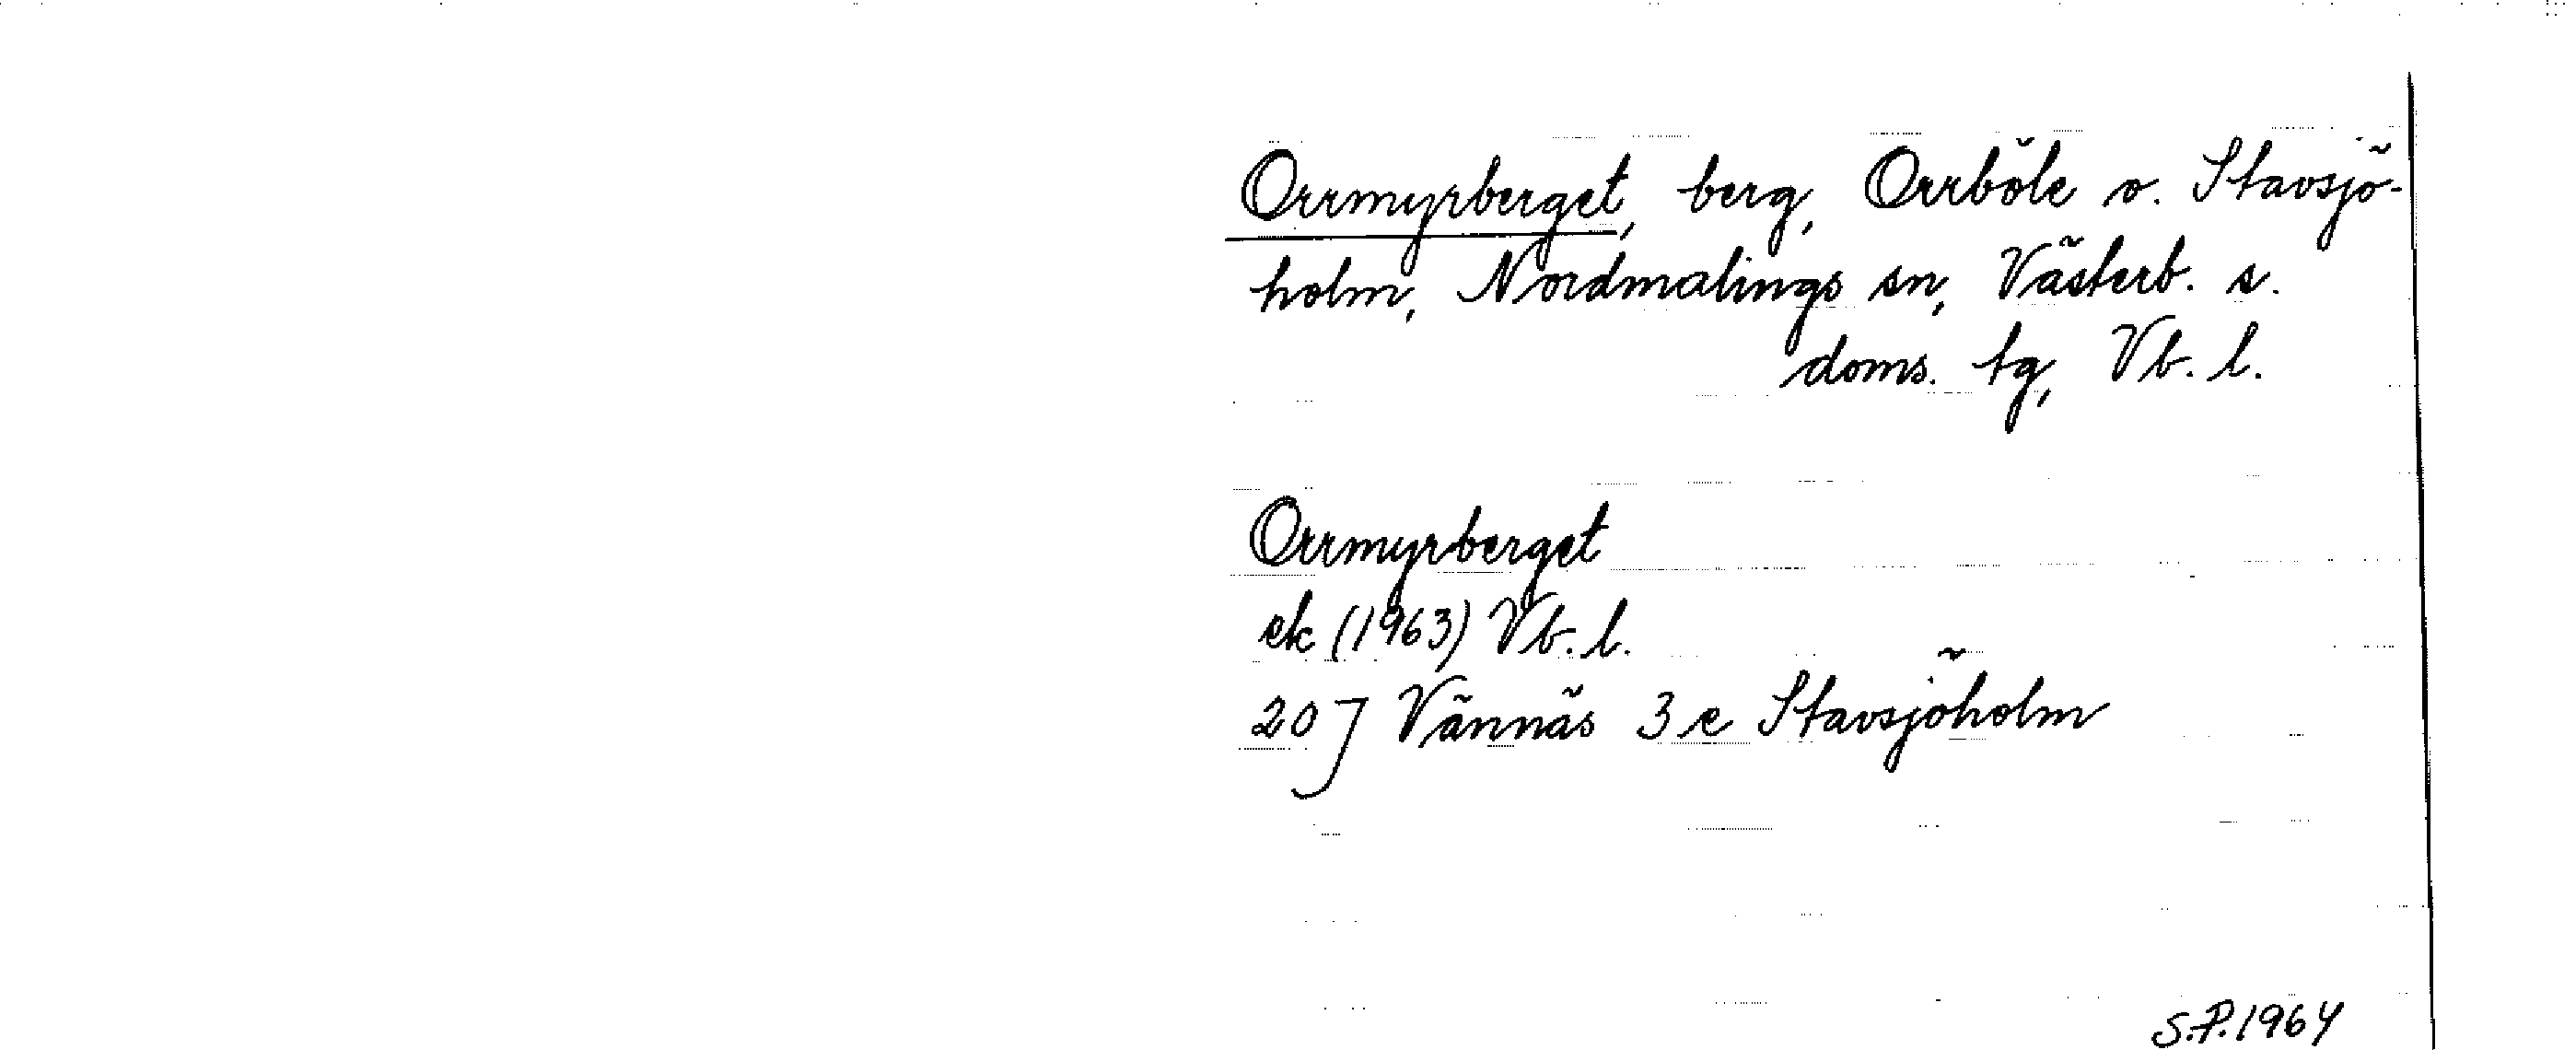 Orrmyrberget, berg, Orrböle o. Stavsjö-
holm, Nordmalings sn, Västerb. s.
doms. tg, Vb. l.
Orrmyrberget
ek (1963) Vb. l.
20J Vännäs 3 e Stavsjöholm
S.P. 1964